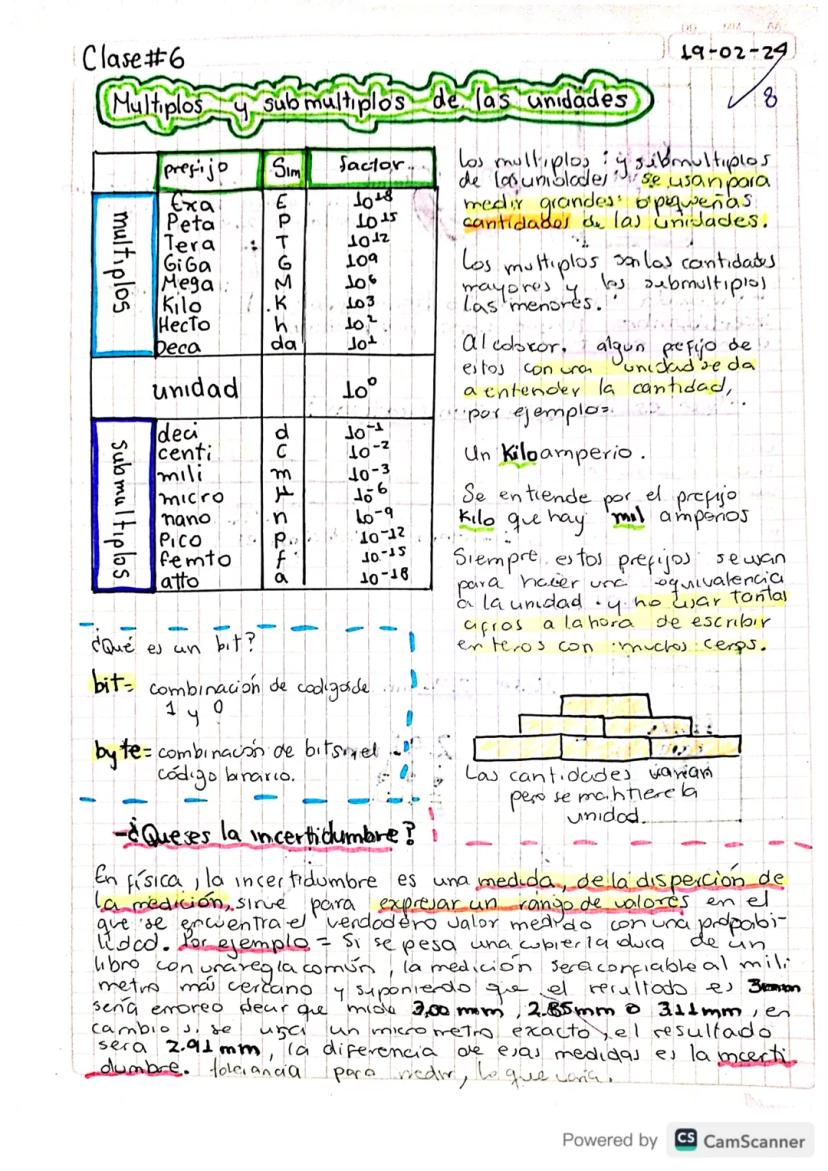 DD MM AA
Clase#6
19-02-24
Multiplos y submultiplos de las unidades
8
prefijo Sim factor
multiplos
Exa E 10^18
Peta P 10^15
Tera : T 10^12
GiGa G 10^9
Mega M 10^6
Kilo K 10^3
Hecto h 10^2
Deca da 10^1
unidad 10^0
submultiplos
deci d 10^-1
centi c 10^-2
mili m 10^-3
micro µ 10^-6
nano n 10^-9
Pico P 10^-12
femto f 10^-15
atto a 10^-18
Los multiplos y submultiplos
de las unidades se usan para
medir grandes o pequeñas
cantidades de las unidades.
Los multiplos son las cantidades
mayores y los submultiplos
las menores.
Al colocar, algun prefijo de
estos con una unidad se da
a entender la cantidad,
por ejemplo=
Un Kiloamperio.
Se entiende por el prefijo
Kilo que hay mil amperios
Siempre estos prefijos se usan
para hacer una equivalencia
a la unidad y no usar tantas
cifras a la hora de escribir
enteros con muchos ceros.
¿Qué es un bit?
bit= combinación de codigos de
1 y 0
byte= combinación de bits en el
código binario.
Las cantidades varian
pero se mantiene la
unidad.
-¿Que es la incertidumbre?
En física, la incertidumbre es una medida, de la disperción de
la medición, sirve para expresar un rango de valores en el
que se encuentra el verdadero valor medido con una probabi-
lidad. Por ejemplo = Si se pesa una cubierta dura de un
libro con una regla común, la medición sera confiable al mili
metro más cercano y suponiendo que el resultado es 3mm
sería erroreo decir que mide 3,00 mm, 2.85mm o 3.11mm, en
cambio si se usa un micrometro exacto, el resultado
sera 2.91 mm, la diferencia de esas medidas es la incerti
dumbre. tolerancia para medir, lo que varia.
Powered by CS CamScanner